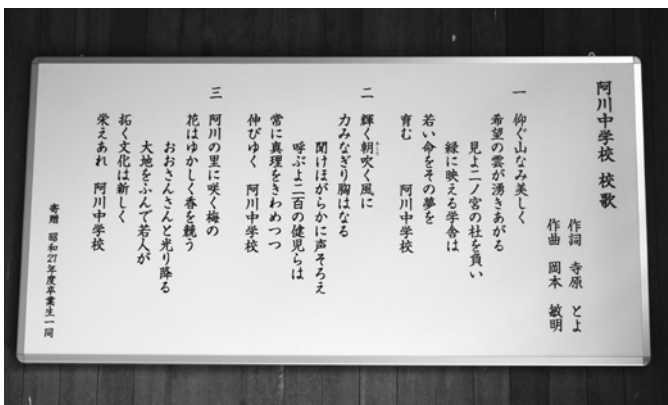 阿川中学校 校歌
作詞 寺原 とよ
作曲 岡本 敏明
一 仰ぐ山なみ美しく
希望の雲が湧きあがる
見よ二ノ宮の社を負い
緑に映える学舎は
若い命をその夢を
育む 阿川中学校
二 輝く朝吹く風に
力みなぎり胸はなる
聞けほがらかに声そろえ
呼ぶよ二百の健児らは
常に真理をきわめつつ
伸びゆく 阿川中学校
三 阿川の里に咲く梅の
花はゆかしく香を競う
おおさんさんと光り降る
大地をふんで若人が
拓く文化は新しく
栄えあれ 阿川中学校
寄贈 昭和27年度卒業生一同